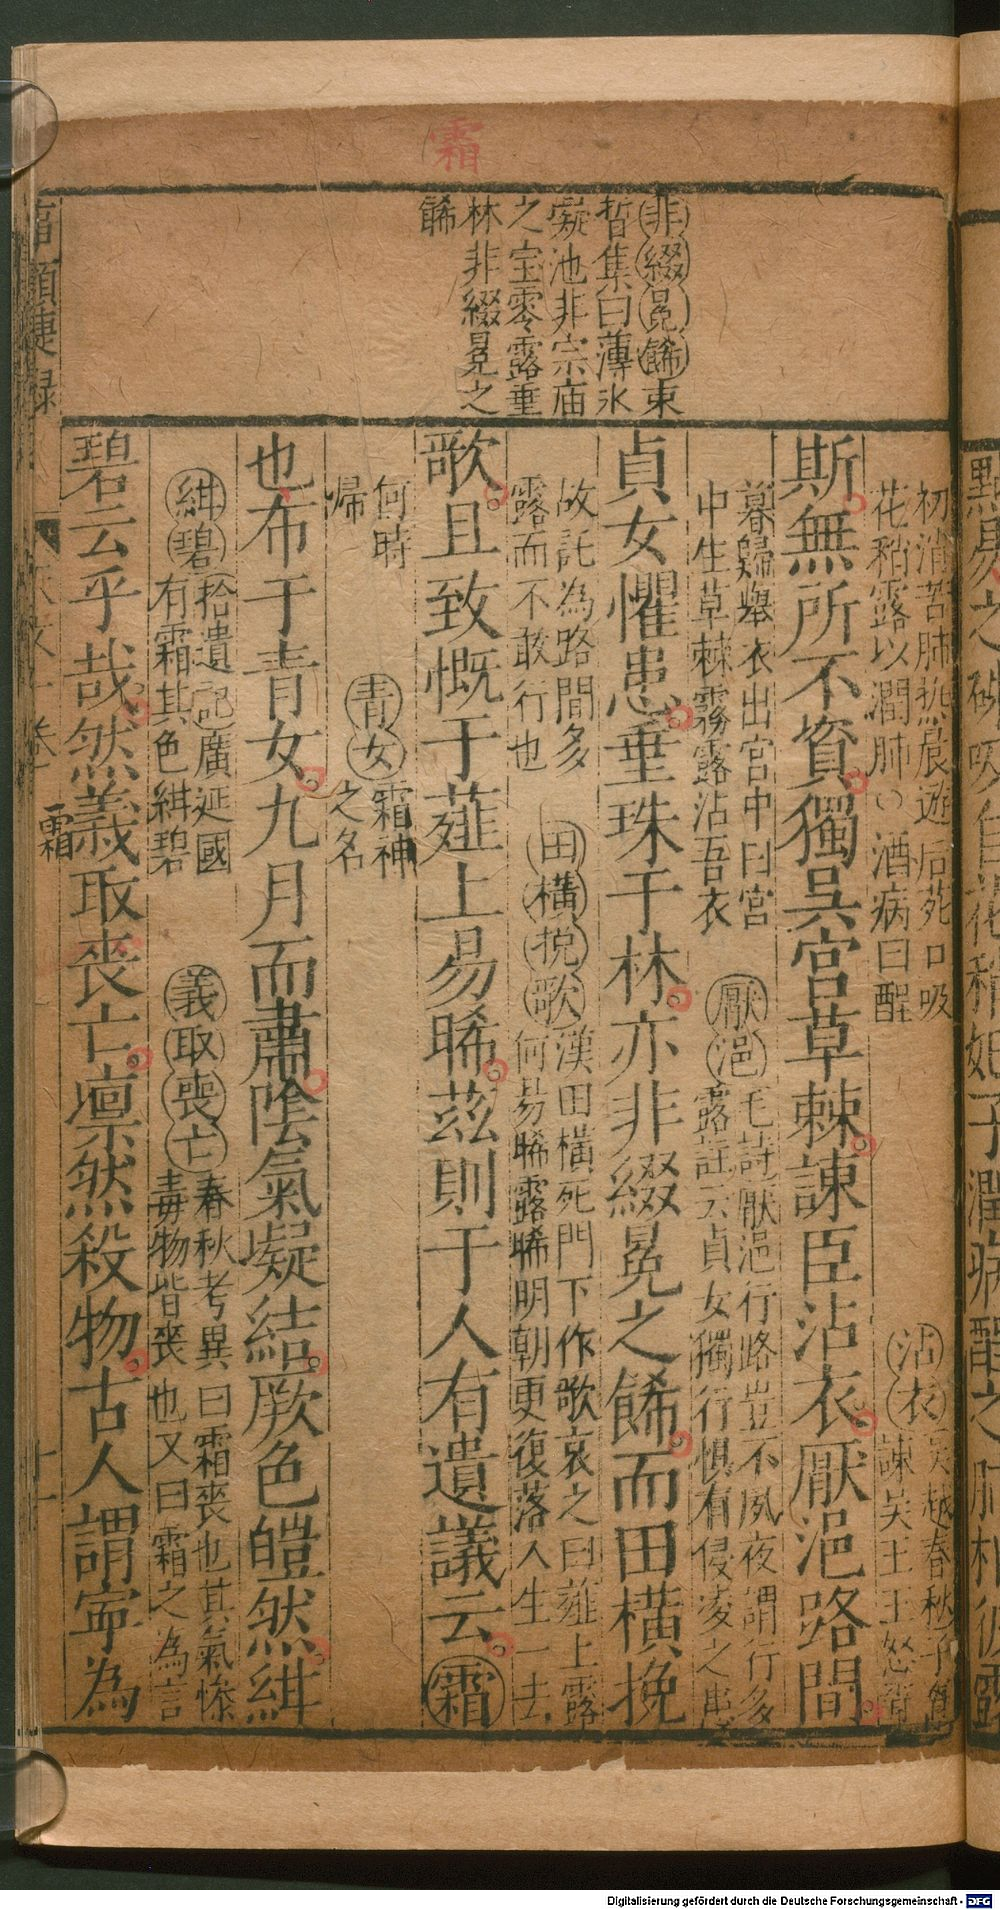 霜
非綴冕餙東
晢集曰薄氷
凝池非宗庙
之宝零露垂
林非綴冕之
餙
初消苦肺热晨遊后苑口吸
花稍露以潤肺○酒病曰酲
沾衣
吴越春秋子胥
諫吴王王怒胥
斯無所不資獨吳宮草棘諫臣沾衣厭浥路間
暮歸舉衣出宮中曰宮
中生草棘霧露沾吾衣
厭浥
毛詩厭浥行路豈不夙夜謂行多
露註云貞女獨行惧有侵凌之患
貞女懼患垂珠于林亦非綴冕之餙而田橫挽
故託為路間多
露而不敢行也
田橫挽歌
漢田橫死門下作歌哀之曰薤上露
何易晞露晞明朝更復落人生一去
歌且致慨于薤上易晞茲則于人有遺議云霜
何時
歸
青女
霜神
之名
也布于青女九月而肅陰氣凝結厥色皚然紺
紺碧
拾遺記廣延國
有霜其色紺碧
義取喪亡
春秋考異曰霜喪也其氣慘
毒物皆喪也又曰霜之為言
碧云乎哉然義取喪亡凛然殺物古人謂寧為
霜
十一
Digitalisierung gefördert durch die Deutsche Forschungsgemeinschaft - DFG